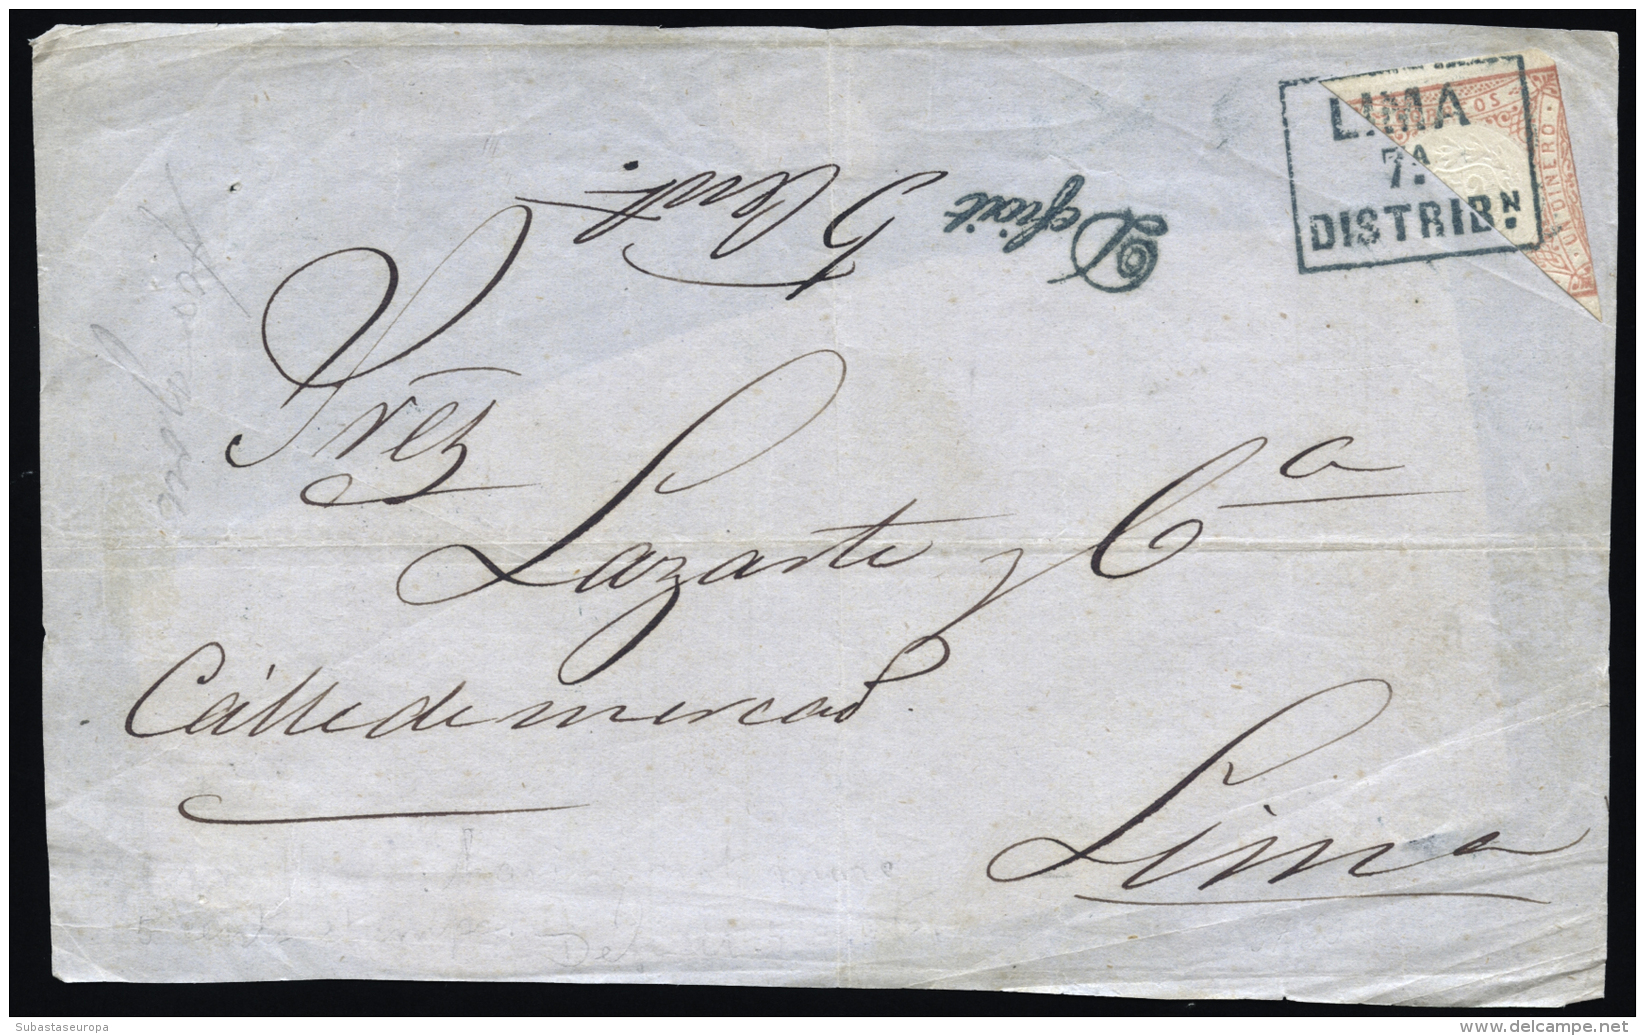 LIMA
7.A
DISTRIBN.
OS
UN DINERO
Deficit
5 Cent.
Sres
Lazarte y Ca
Calle de mercad
Lima
Subastaseuropa
delcampe.net